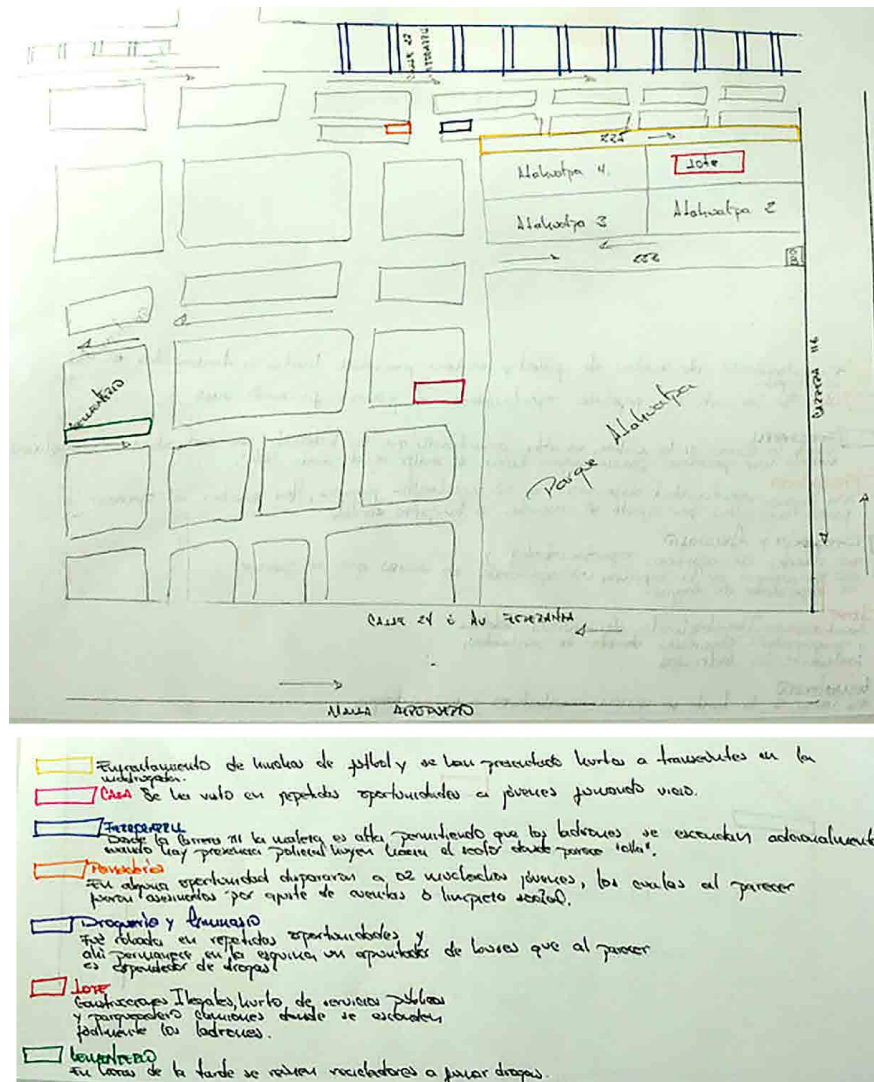 CALLE 22
FERROCARRIL
225
Atahualpa 4.
Lote
Atahualpa 3
Atahualpa 2
222
CARRERA 116
CEMENTERIO
Parque Atahualpa
CALLE 24 ó AV ESPERANZA
MALLA AEROPUERTO
Enfrentamiento de hinchas de futbol y se han presentado hurtos a transeuntes en la
madrugada.
CASA Se ha visto en repetidas oportunidades a jóvenes fumando vicio.
Ferrocarril
Desde la Carrera 111 la maleza es alta permitiendo que los ladrones se escondan adicionalmente
cuando hay presencia policial huyen hacia el sector donde parece "olla".
Panadería
En alguna oportunidad dispararon a 02 muchachos jóvenes, los cuales al parecer
fueron asesinados por ajuste de cuentas o limpieza social.
Droguería y Gimnasio
Fue robada en repetidas oportunidades y
ahí permanece en la esquina un apuntador de buses que al parecer
es expendedor de drogas.
LOTE
Construcciones Ilegales, hurto de servicios públicos
y parqueadero camiones donde se esconden
facilmente los ladrones.
CEMENTERIO
En horas de la tarde se reúnen recicladores a fumar drogas.